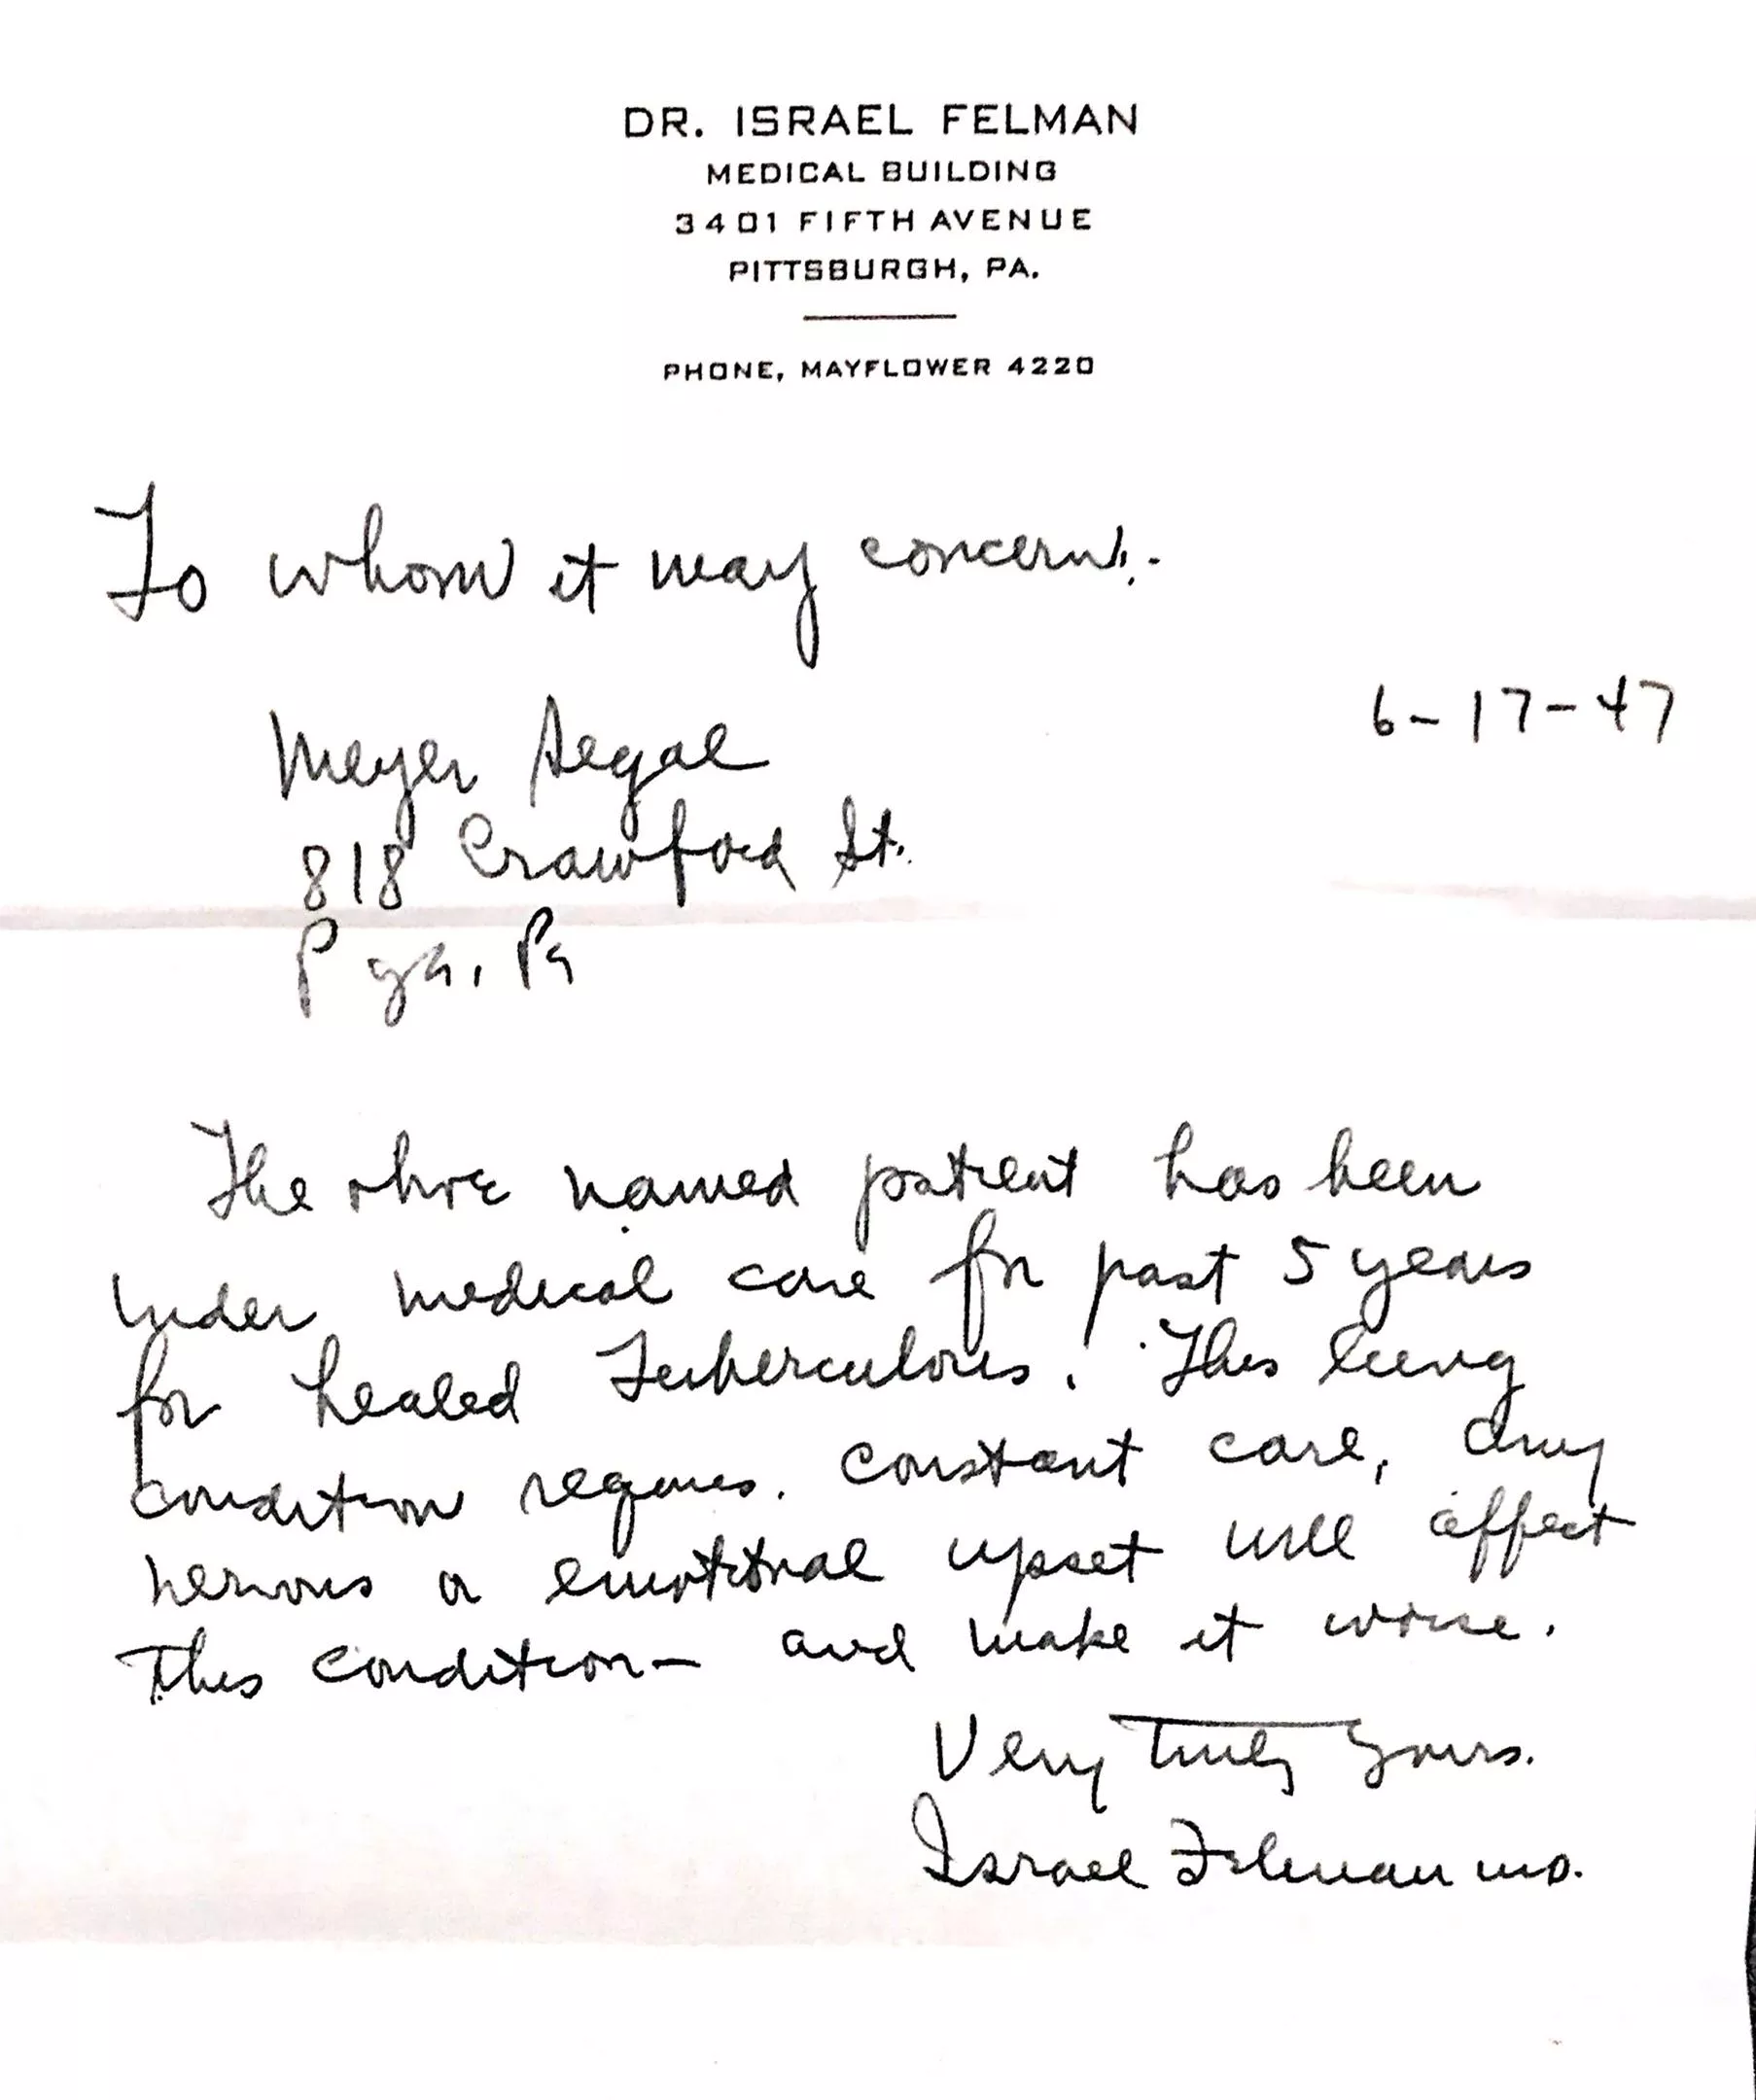 DR. ISRAEL FELMAN
MEDICAL BUILDING
3401 FIFTH AVENUE
PITTSBURGH, PA.
PHONE, MAYFLOWER 4220
To whom it may concern:-
6-17-47
Meyer Segal
818 Crawford St.
Pgh. Pa
The above named patient has been
under medical care for past 5 years
for healed Tuberculosis. This lung
condition requires constant care, any
nervous or emotional upset will affect
this condition - and make it worse.
Very Truly Yours.
Israel Felman MD.